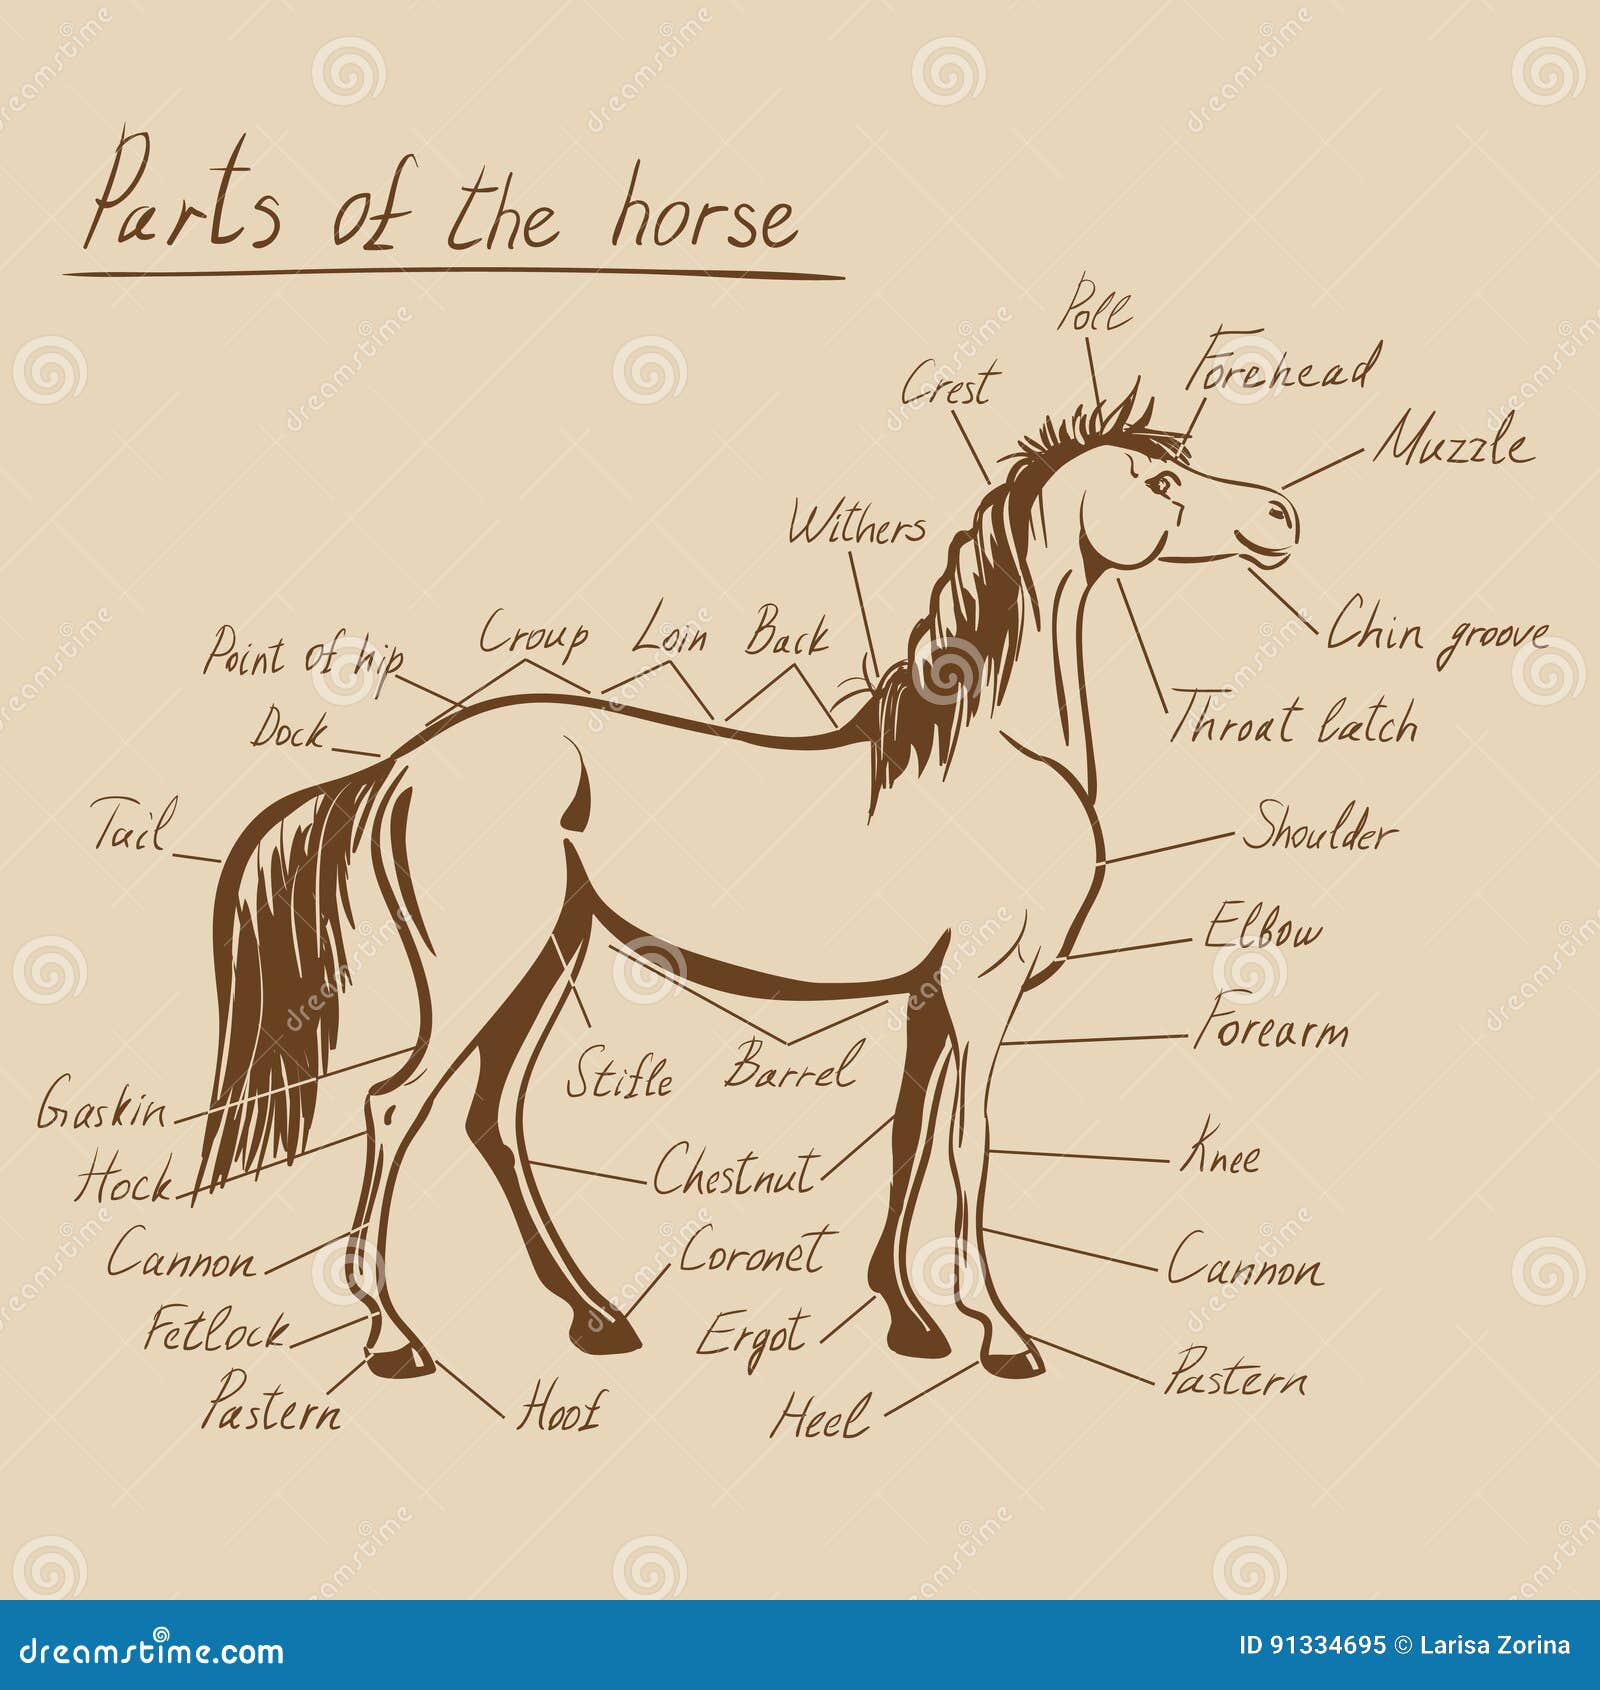 Parts of the horse
Poll
Forehead
Crest
Muzzle
Withers
Chin groove
Point of hip
Croup
Loin
Back
Dock
Throat latch
Tail
Shoulder
Elbow
Forearm
Stifle
Barrel
Gaskin
Knee
Hock
Chestnut
Cannon
Coronet
Cannon
Fetlock
Ergot
Pastern
Pastern
Hoof
Heel
dreamstime.com
ID 91334695 © Larisa Zorina